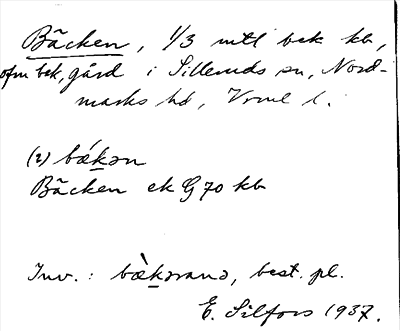 Bäcken, 1/3 mtl bek kb,
ofm bek, gård i Silleruds sn, Nord-
marks hd, Vrml l.
(2) bǽkən
Bäcken ek G 70 kb
Inv.: bæ̀kərana, best. pl.
E. Silfors 1937.